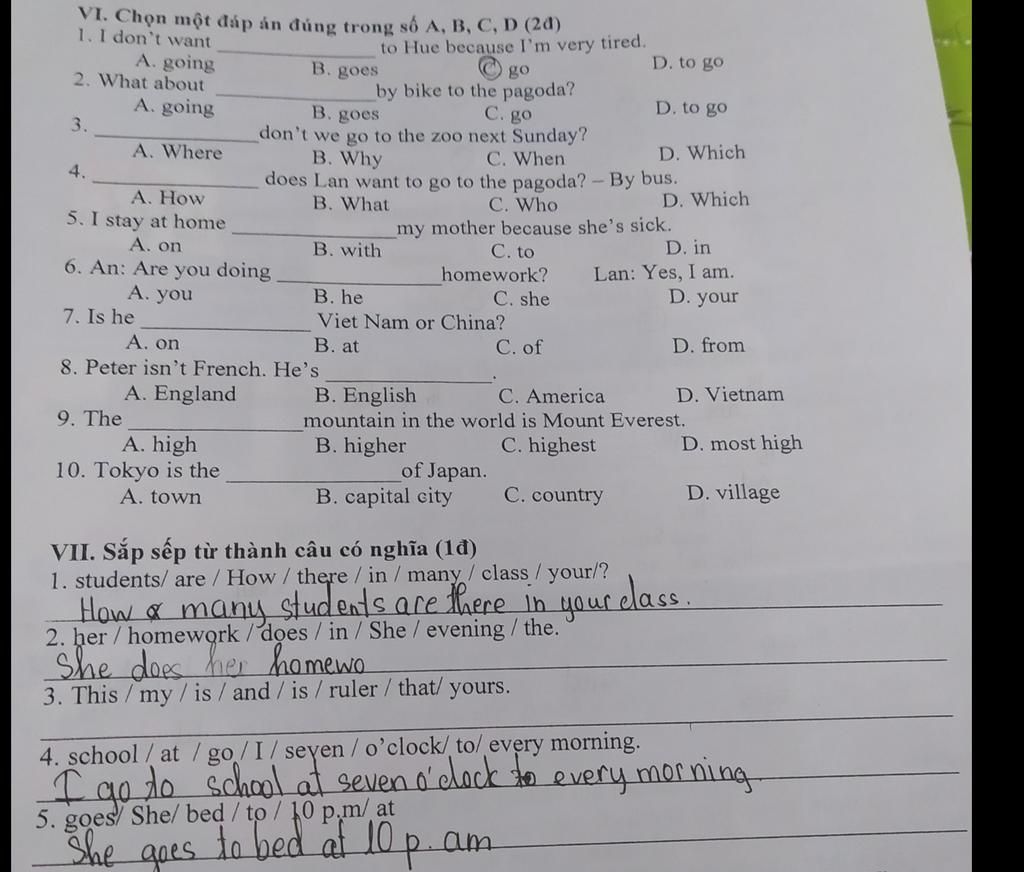 VI. Chọn một đáp án đúng trong số A, B, C, D (2đ)
1. I don't want ____________ to Hue because I'm very tired.
A. going B. goes C. go D. to go
2. What about ____________ by bike to the pagoda?
A. going B. goes C. go D. to go
3. ____________ don't we go to the zoo next Sunday?
A. Where B. Why C. When D. Which
4. ____________ does Lan want to go to the pagoda? – By bus.
A. How B. What C. Who D. Which
5. I stay at home ____________ my mother because she's sick.
A. on B. with C. to D. in
6. An: Are you doing ____________ homework? Lan: Yes, I am.
A. you B. he C. she D. your
7. Is he ____________ Viet Nam or China?
A. on B. at C. of D. from
8. Peter isn't French. He's ____________.
A. England B. English C. America D. Vietnam
9. The ____________ mountain in the world is Mount Everest.
A. high B. higher C. highest D. most high
10. Tokyo is the ____________ of Japan.
A. town B. capital city C. country D. village
VII. Sắp sếp từ thành câu có nghĩa (1đ)
1. students/ are / How / there / in / many / class / your/?
How many students are there in your class.
2. her / homework / does / in / She / evening / the.
She does her homewo
3. This / my / is / and / is / ruler / that/ yours.
4. school / at / go / I / seven / o'clock/ to/ every morning.
I go to school at seven o'clock to every morning.
5. goes/ She/ bed / to / 10 p.m/ at
She goes to bed at 10 p. am